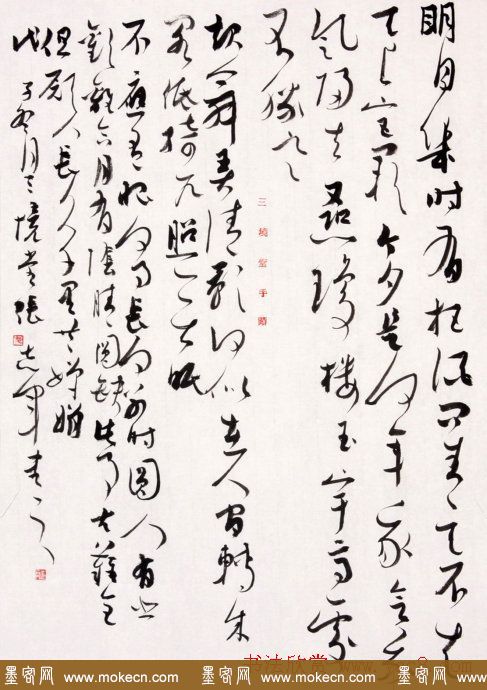 明月幾时有把酒问青天不知
天上宫阙今夕是何年我欲乘
风归去又恐瓊楼玉宇高處
不胜寒
起舞弄清影何似在人间轉朱
阁低绮户照无眠
不應有恨何事长向别时圆人有悲
歡離合月有陰晴圆缺此事古難全
但願人长久千里共婵娟
戊子冬月三境堂張
三境堂手蹟
书法欣赏
墨客网 www.mokecn.com 墨客网 www.mokecn.com 墨客网 www.mokecn.com